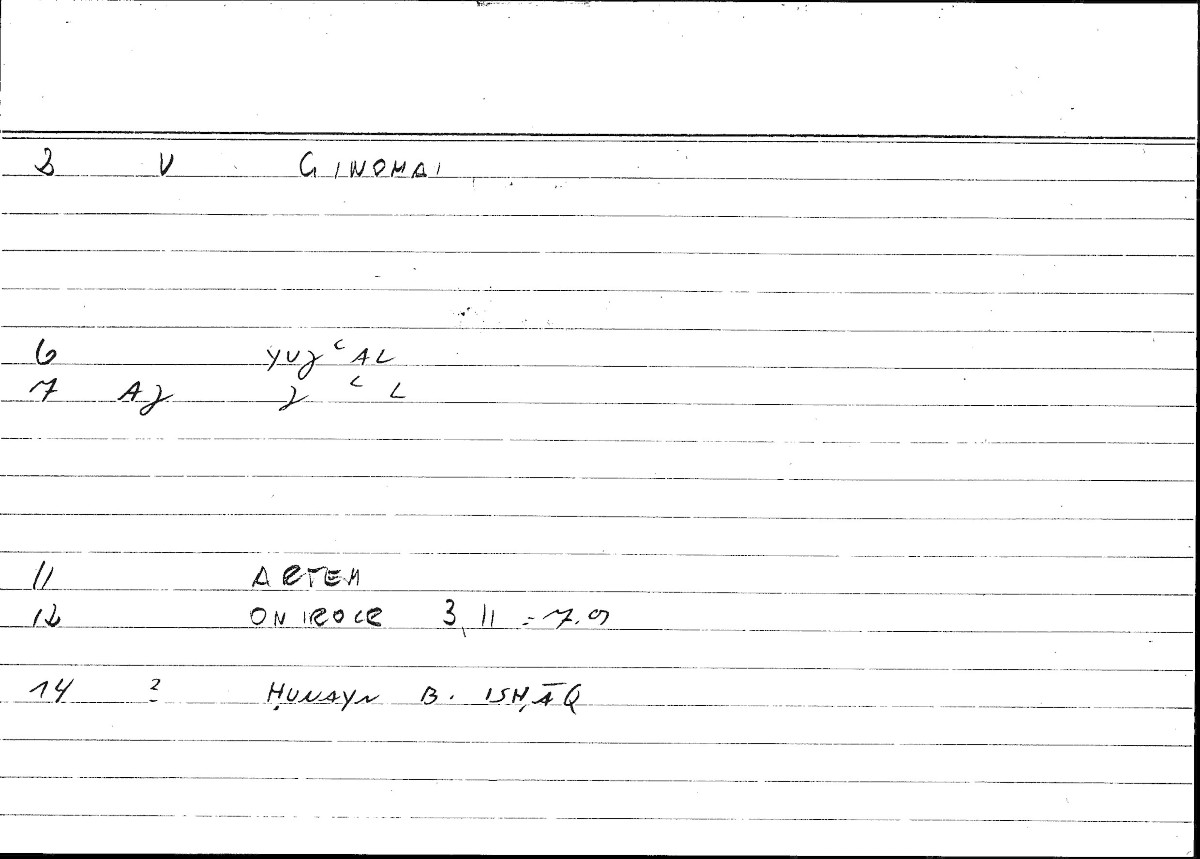 2 V GINOMAI
6 YUJ ʿAL
7 AJ J ʿ L
11 ARTEM
12 ONIROCR 3,11 = 7.9
14 ? ḤUNAYN B. ISḤĀQ